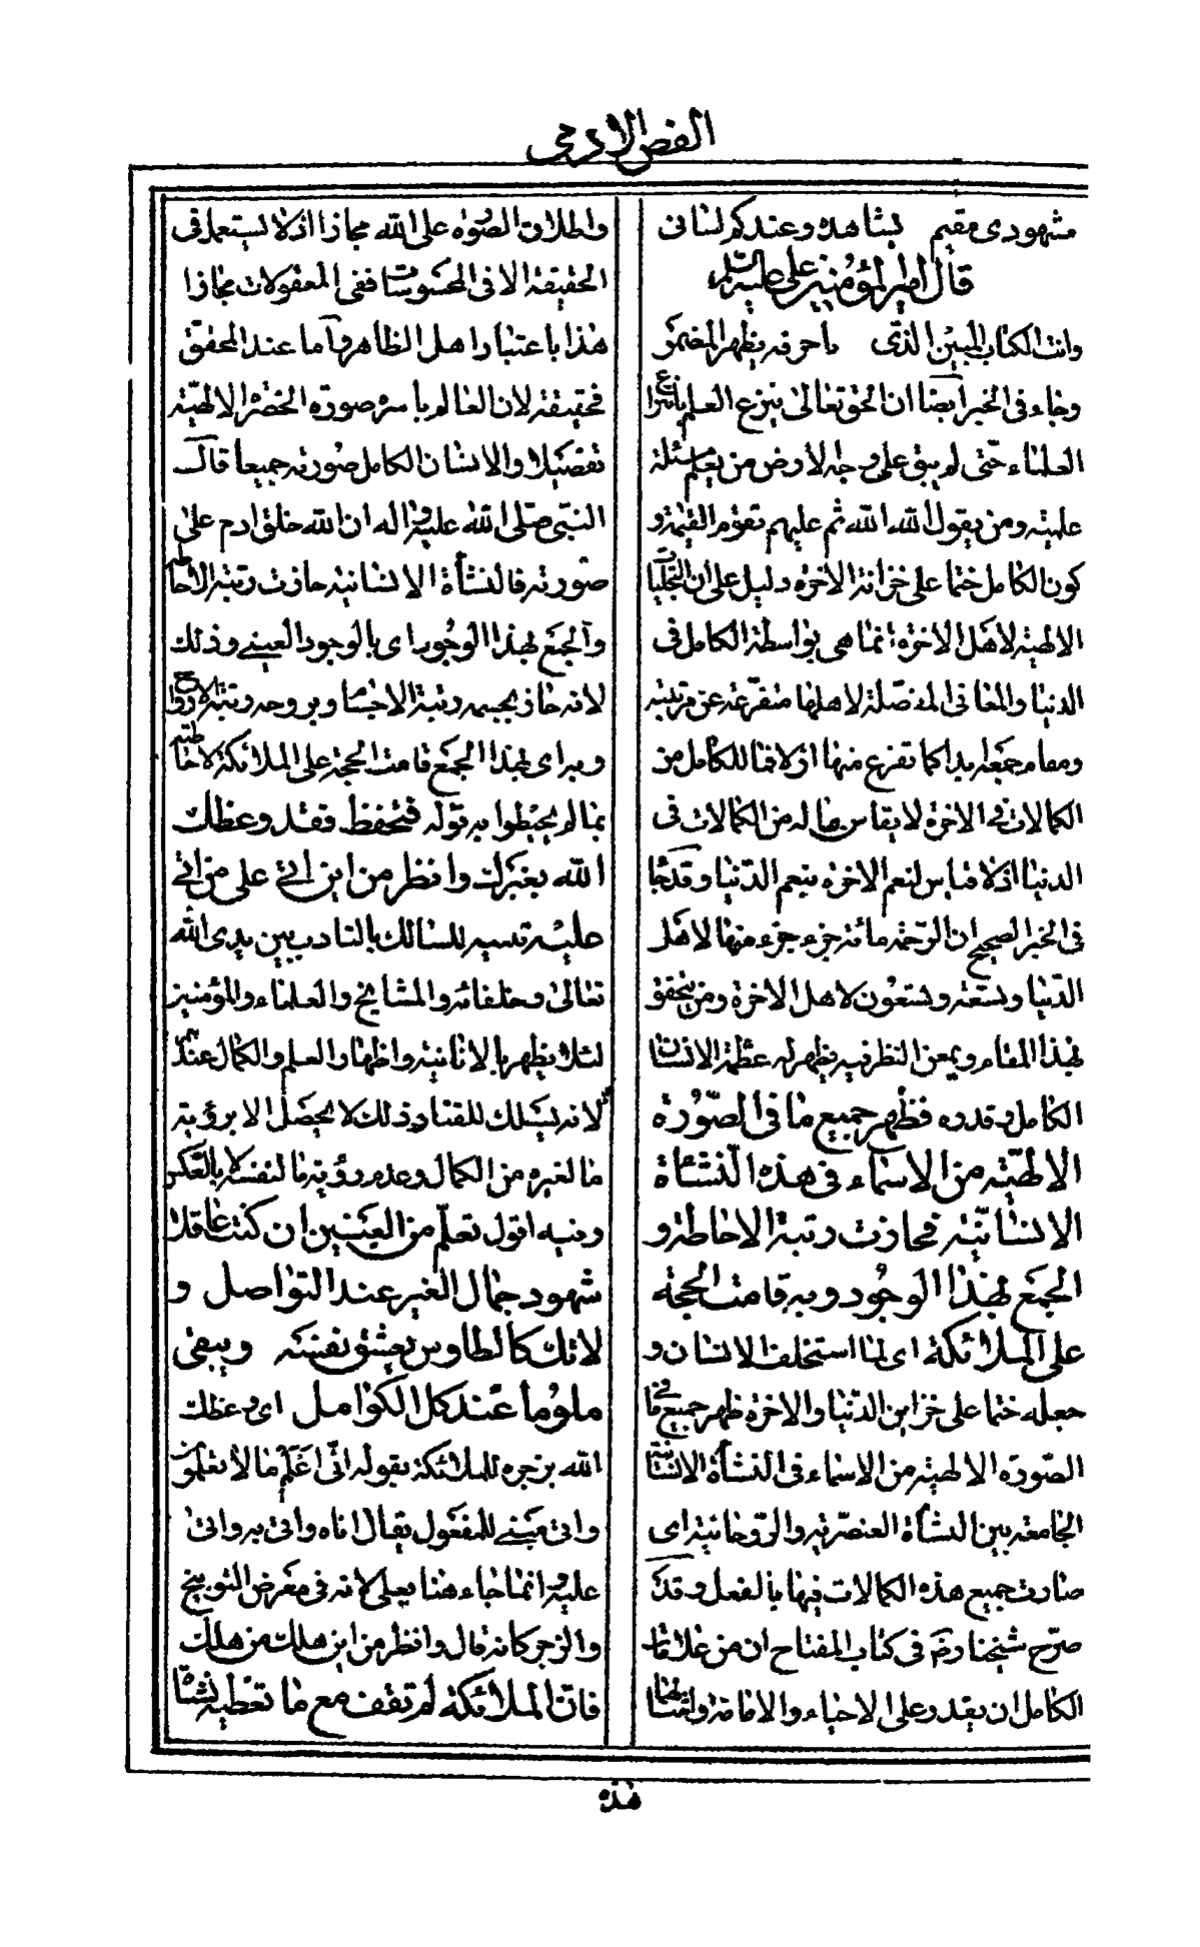 الفص الادمی
مشهودی مقیم یشاهده وعندکم لسانی
قال امیرالمؤمنین علی علیه السلم
وانت الکتاب المبین الذی باحرفه یظهر المضمر
وجاء فی الخبر ایضا ان الحق تعالی ینزع العلم بانتزاع
العلماء حتی لم یبق علی وجه الارض من یعلم مسئلة
علمیة ومن یقول الله الله ثم علیهم تقوم القیمة و
کون الکامل ختما علی خزانة الاخرة دلیل علی ان التجلیات
الالهیة لاهل الاخرة انما هی بواسطة الکامل فی
الدنیا والمعانی المفصلة لاهلها متفرعة عن مرتبته
ومقام جمعه ابدا کما تفرع منها ازلا فما للکامل من
الکمالات فی الاخرة لا یقاس بما له من الکمالات فی
الدنیا اذ لا قیاس لنعم الاخرة بنعم الدنیا وقد جاء
فی الخبر الصحیح ان الرحمة مائة جزء جزء منها لاهل
الدنیا وتسعة وتسعون لاهل الاخرة ومن یتحقق
بهذا المقام ویمعن النظر فیه یظهر له عظمة الانسان
الکامل وقدره فظهر جمیع ما فی الصورة
الالهیة من الاسماء فی هذه النشئاة
الانسانیة فحازت رتبة الاحاطة و
الجمع بهذا الوجود وبه قامت الحجة
علی الملائکة ای لما استخلف الانسان و
جعله ختما علی خزاین الدنیا والاخرة ظهر جمیع ما فی
الصورة الالهیة من الاسماء فی النشأة الانسانیة
الجامعة بین النشأة العنصریة والروحانیة ای
صارت جمیع هذه الکمالات فیها بالفعل وقد
صرح شیخنا رض فی کتاب المفتاح ان من علامات
الکامل ان یقدر علی الاحیاء والاماتة وامثالهما
واطلاق الصورة علی الله مجازا اذ لا یستعمل فی
الحقیقة الا فی المحسوسات ففی المعقولات مجازا
هذا باعتبار اهل الظاهر واما عند المحقق
فحقیقة لان العالم باسره صورة الحضرة الالهیة
تفصیلا والانسان الکامل صورته جمیعا قال
النبی صلی الله علیه واله ان الله خلق ادم علی
صورته فالنشأة الانسانیة حازت رتبة الاحاطة
والجمع بهذا الوجود ای بالوجود العینی وذلک
لانه حاز بجسمه رتبة الاجسام وبروحه رتبة الارواح
وبه ای بهذا الجمع قامت الحجة علی الملائکة لاحاطته
بما لم یحیطوا به قوله فتحفظ فقد وعظک
الله بغیرک وانظر من این اتی علی من اتی
علیه تنبیه للسالک بالتادب بین یدی الله
تعالی وخلفائه والمشایخ والعلماء والمؤمنین
لئلا یظهر بالانانیة واظهار العلم والکمال عندهم
لانه یسلک للفناء وذلک لا یحصل الا برؤیة
ما لغیره من الکمال وعدم رؤیة ما لنفسه لا بالعکس
وفیه اقول تعلم من العینین ان کنت عاقلا
شهود جمال الغیر عند التواصل و
لا تک کالطاوس یعشق نفسه ویبقی
ملوما عند کل الکوامل ای وعظک
الله بزجره للملائکة بقوله انی اعلم ما لا تعلمون
واتی مبنی للمفعول یقال اتاه واتی به واتی
علیه وانما جاء هنا بعلی لانه فی معرض التوبیخ
والزجر کانه قال وانظر من این هلک من هلک
فان الملائکة لم تقف مع ما تعطیه نشئاة
هذه